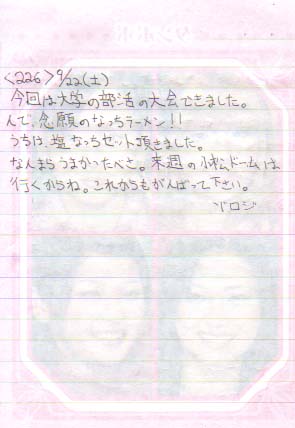 タンポポ
<226> 9/22(土)
今回は大学の部活の大会できました。
んで、念願のなっちラーメン!!
うちは、塩なっちセット頂きました。
なんまらうまかったべさ。来週の小松ドームは
行くからね。これからもがんばって下さい。
ソロジ